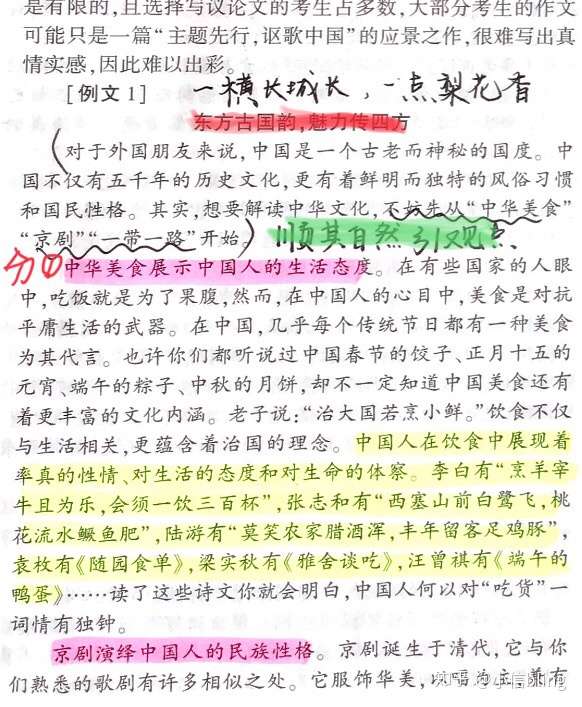 是有限的,且选择写议论文的考生占多数,大部分考生的作文
可能只是一篇“主题先行,讴歌中国”的应景之作,很难写出真
情实感,因此难以出彩。
[例文1] 一横长城长,一点梨花香
东方古国韵,魅力传四方
对于外国朋友来说,中国是一个古老而神秘的国度。中
国不仅有五千年的历史文化,更有着鲜明而独特的风俗习惯
和国民性格。其实,想要解读中华文化,不妨先从“中华美食”
“京剧”“一带一路”开始。 顺其自然 引观点
分① 中华美食展示中国人的生活态度。在有些国家的人眼
中,吃饭就是为了果腹,然而,在中国人的心目中,美食是对抗
平庸生活的武器。在中国,几乎每个传统节日都有一种美食
为其代言。也许你们都听说过中国春节的饺子、正月十五的
元宵、端午的粽子、中秋的月饼,却不一定知道中国美食还有
着更丰富的文化内涵。老子说:“治大国若烹小鲜。”饮食不仅
与生活相关,更蕴含着治国的理念。中国人在饮食中展现着
率真的性情、对生活的态度和对生命的体察。李白有“烹羊宰
牛且为乐,会须一饮三百杯”,张志和有“西塞山前白鹭飞,桃
花流水鳜鱼肥”,陆游有“莫笑农家腊酒浑,丰年留客足鸡豚”,
袁枚有《随园食单》,梁实秋有《雅舍谈吃》,汪曾祺有《端午的
鸭蛋》……读了这些诗文你就会明白,中国人何以对“吃货”一
词情有独钟。
京剧演绎中国人的民族性格。京剧诞生于清代,它与你
们熟悉的歌剧有许多相似之处。它服饰华美,
知乎